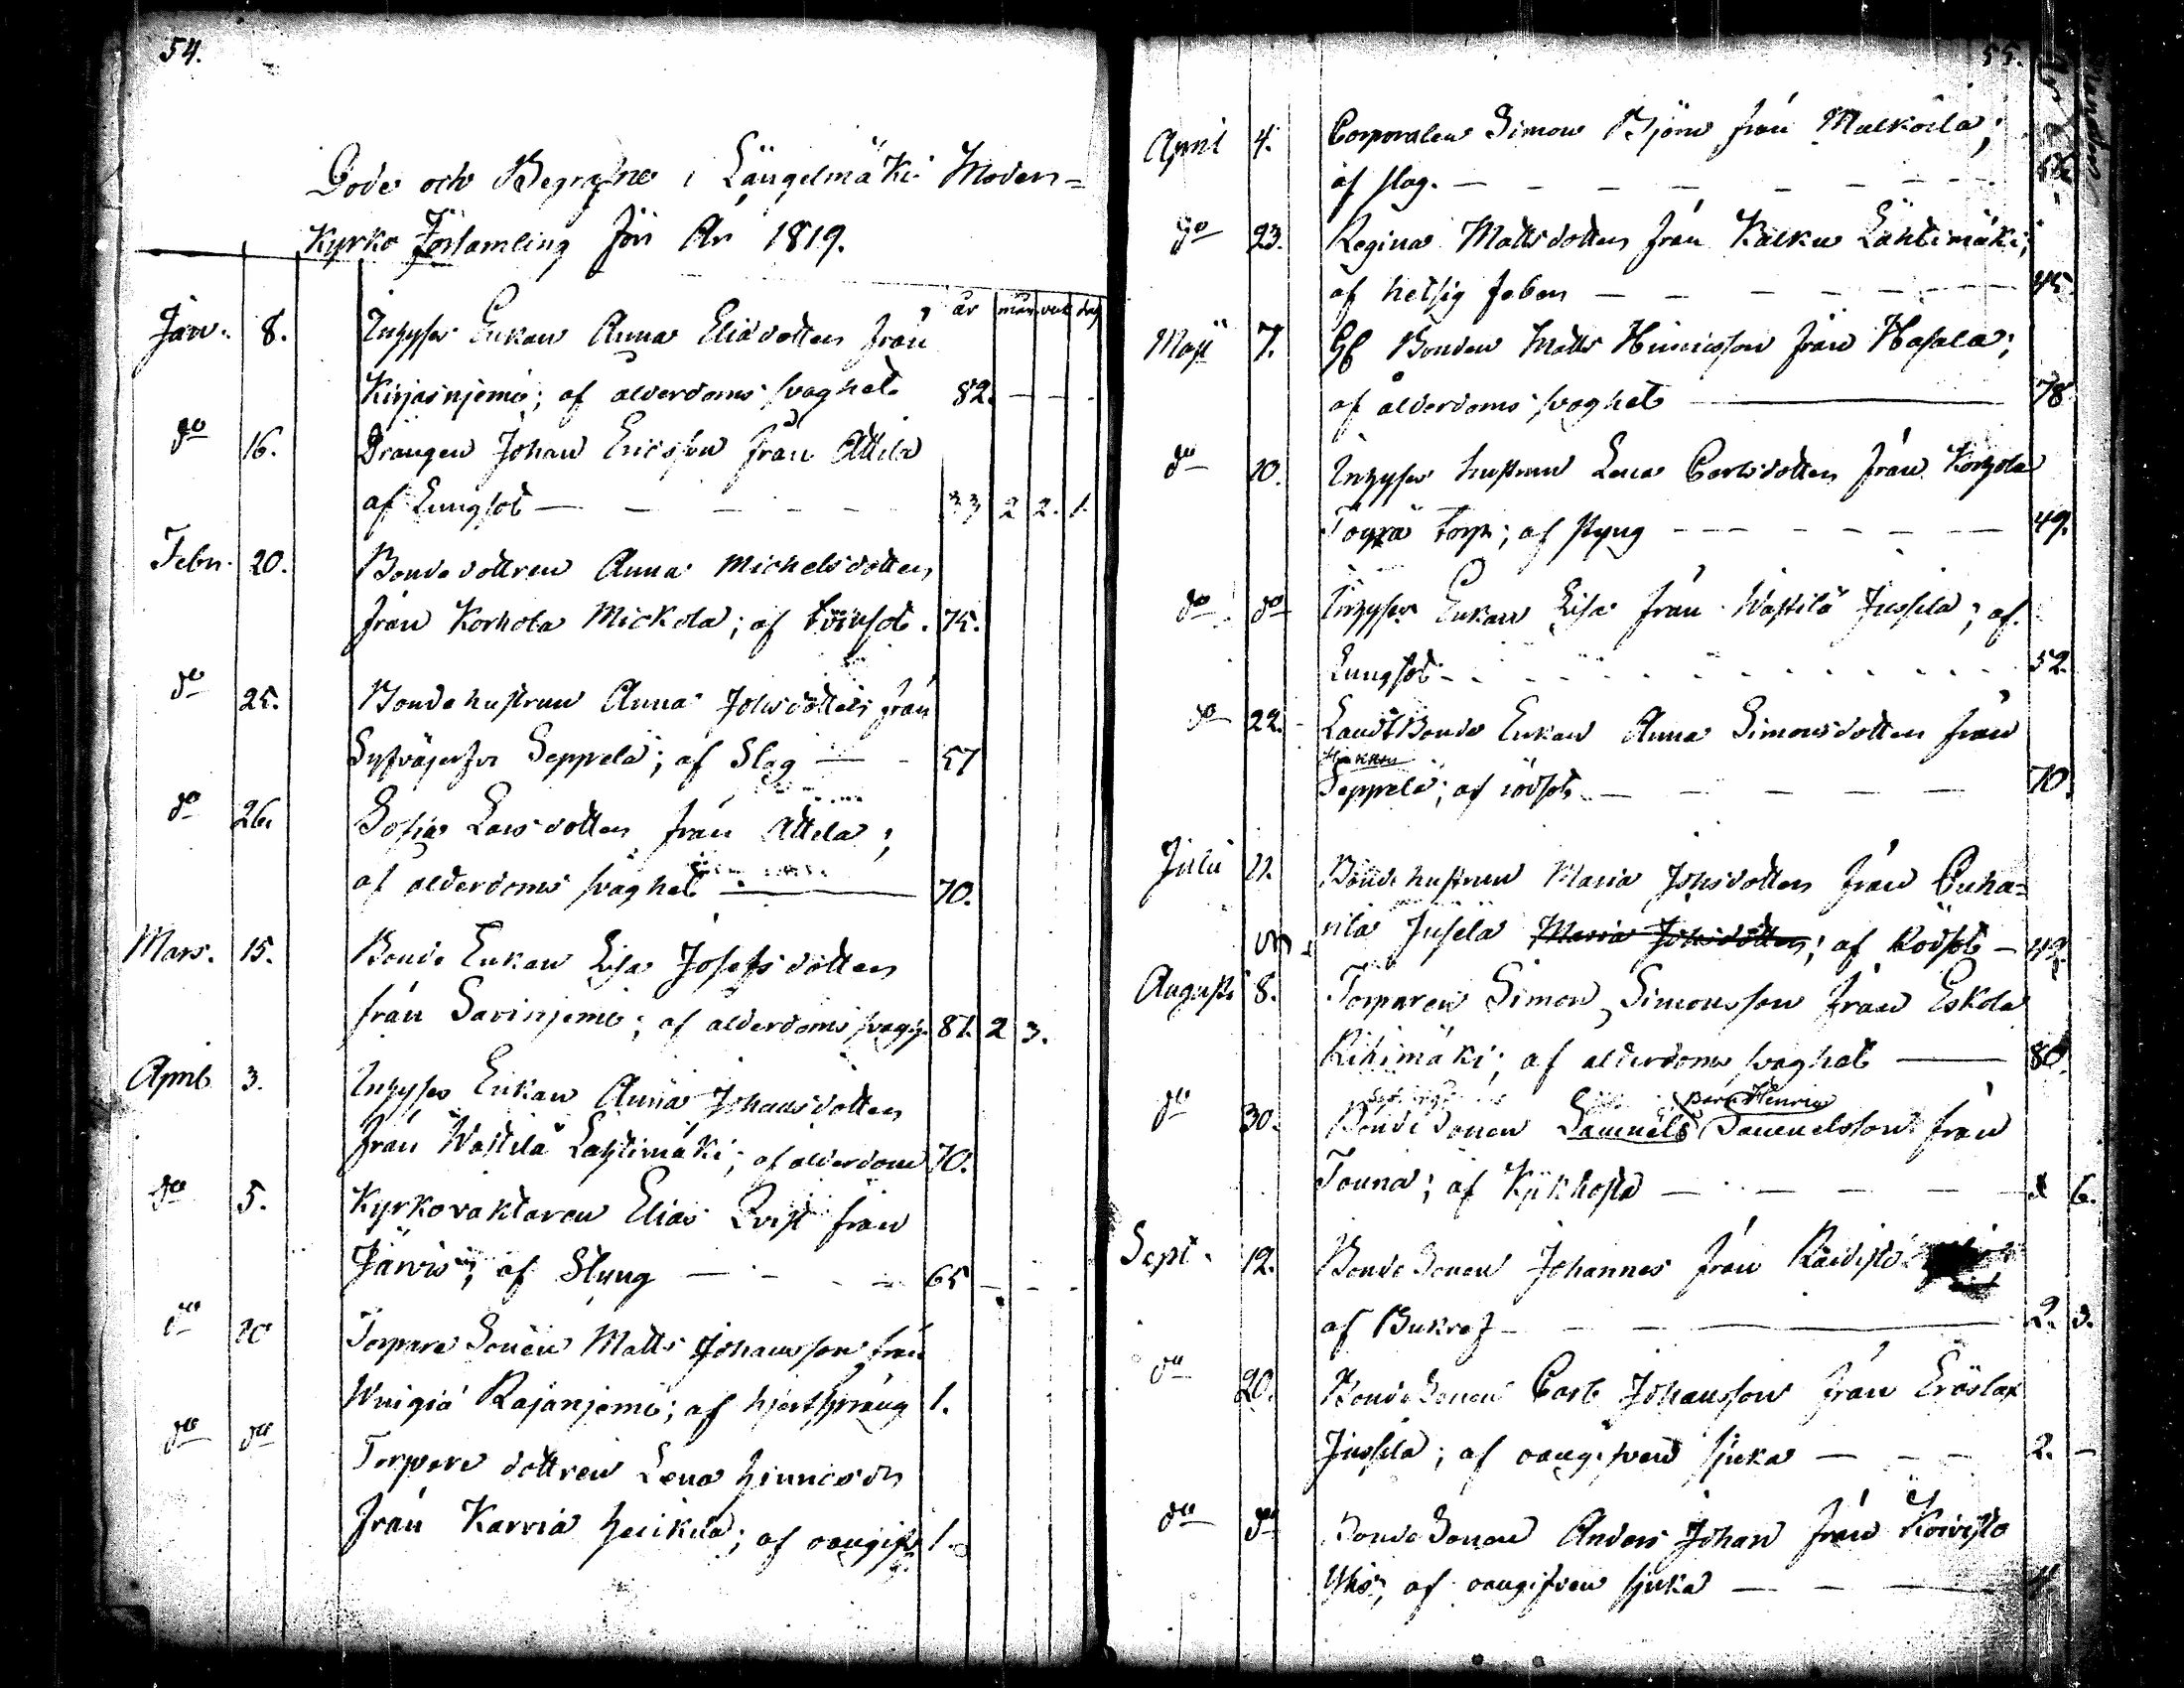 54.
Döde och Begrafne i Längelmäki Moder=
Kyrko Församling för År 1819.
år mån veck dag
Janv. 8. Inhyses Enkan Anna Eliædotter från
Kirjasnjemi; af ålderdoms svaghet. 82. — — -
do 16. Drängen Johan Ericsson från Attila
af Lungsot — — — — — 33 2 2. 1.
Febr. 20. Bondedottren Anna Michelsdotter
från Korhola Mickola; af tvinsot. 75.
do 25. Bondehustrun Anna Johsdotter från
Seppelä; af Slag — - 57
do 26. Sofia Larsdotter från Attila;
af ålderdoms svaghet — 70.
Mars. 15. Bonde Enkan Lisa Josefsdotter
från Savinjemi; af ålderdoms svagh. 81. 2 3.
April 3. Inhyses Enkan Anna Johansdotter
från Wästilä Lahtimäki; af ålderdom 70.
do 5. Kyrkovaktaren Elias Qvist från
Järvis; af Styng — - - — 65 - - -
do 20 Torpare Sonen Matts Johansson från
Rajanjemi; af hjertsprång 1.
do do Torpare dottren Lena Hinricsdr
från Karvia Heikila; af oangif. 1.
55.
April 4. Corporalen Simon Björn från Mulkoila;
af slag. — — — — — — — 52
do 23. Regina Mattsdotter från Kalku Lähtimäki;
af hetsig feber — — — — — — 45.
Maji 7. Gl Bonden Matts Hinricsson från Hasala;
af ålderdoms svaghet — 78
do 10. Inhyses hustrun Lena Carlsdotter från
torp; af styng - - - — — — 49.
do do Inhyses Enkan Lisa från Wästilä Jussila; af
Lungsot - - - - - - - 52.
do 22. Landtbonde Enkan Anna Simonsdotter från
Seppelä; af rödsot — — — — — 70.
Julii 11. Bondehustrun Maria Johsdotter från
Jusela Maria Johsdotter; af Rödsot —
Augusti 8. Torparen Simon Simonsson från Eskola
Rihimäki; af ålderdoms svaghet — 80.
do 30. Bonde Sonen Samuels Barn Henric Samuelsson från
Touna; af Kikhosta — — — — — 6.
Sept. 12. Bonde Sonen Johannes från
af Bukref — — — 2. 3.
do 20. Bonde Sonen Carl Johansson från Eräslax
Jussila; af oangifven sjuka — — — 2. —
do do Bonde Sonen Anders Johan från Koivisto
Yhö; af oangifven sjuka — — —